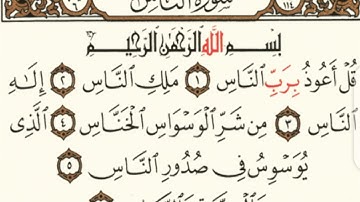 سُورَةُ النَّاسِ ١١٤
بِسْمِ اللَّهِ الرَّحْمَٰنِ الرَّحِيمِ
قُلْ أَعُوذُ بِرَبِّ النَّاسِ ١ مَلِكِ النَّاسِ ٢ إِلَٰهِ
النَّاسِ ٣ مِن شَرِّ الْوَسْوَاسِ الْخَنَّاسِ ٤ الَّذِي
يُوَسْوِسُ فِي صُدُورِ النَّاسِ ٥